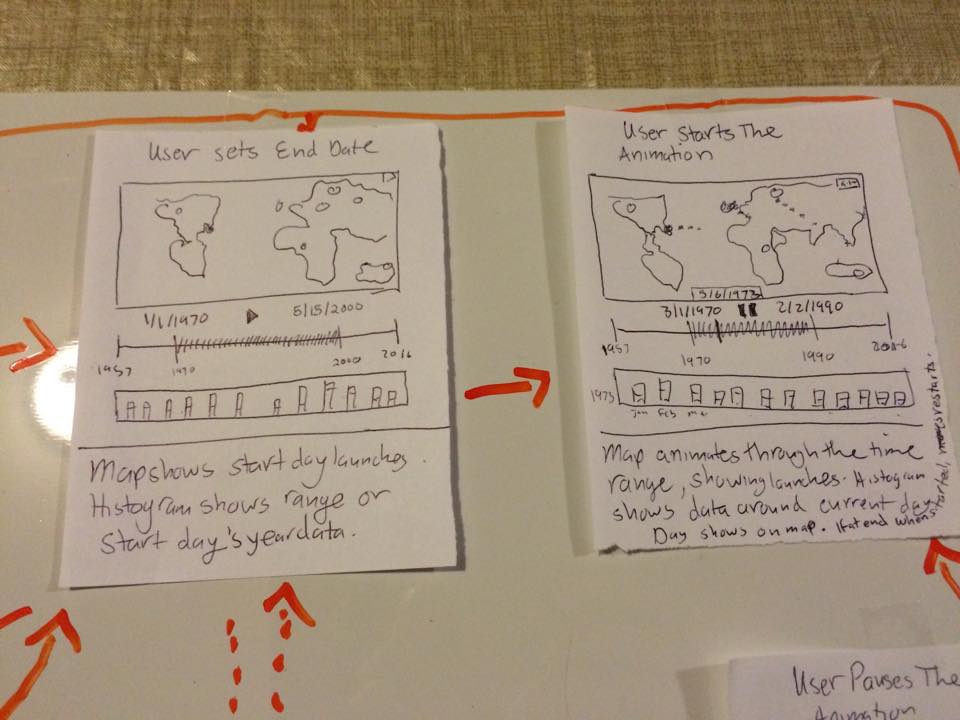 User sets End Date
1/1/1970
5/15/2000
1957
1970
2000
2016
Map shows start day launches.
Histogram shows range or
Start day's year data.
User Starts The
Animation
5/6/1973
3/1/1970
2/2/1990
1957
1970
1990
1973
Jan Feb
Map animates through the time
range, showing launches. Histogram
shows data around current day
Day shows on map. If at end when
started, restarts.
User Pauses The
Animation